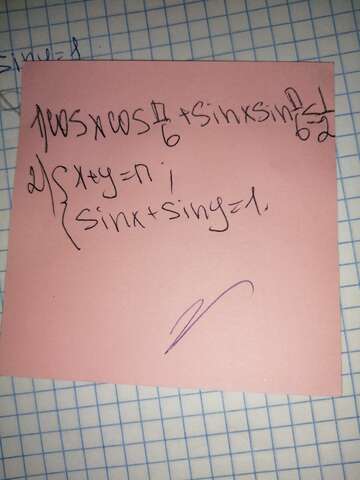 siny=1
1) cosxcos π/6 + sinxsin π/6 ≤ 1/2
2) { x+y=π;
{ sinx+siny=1.